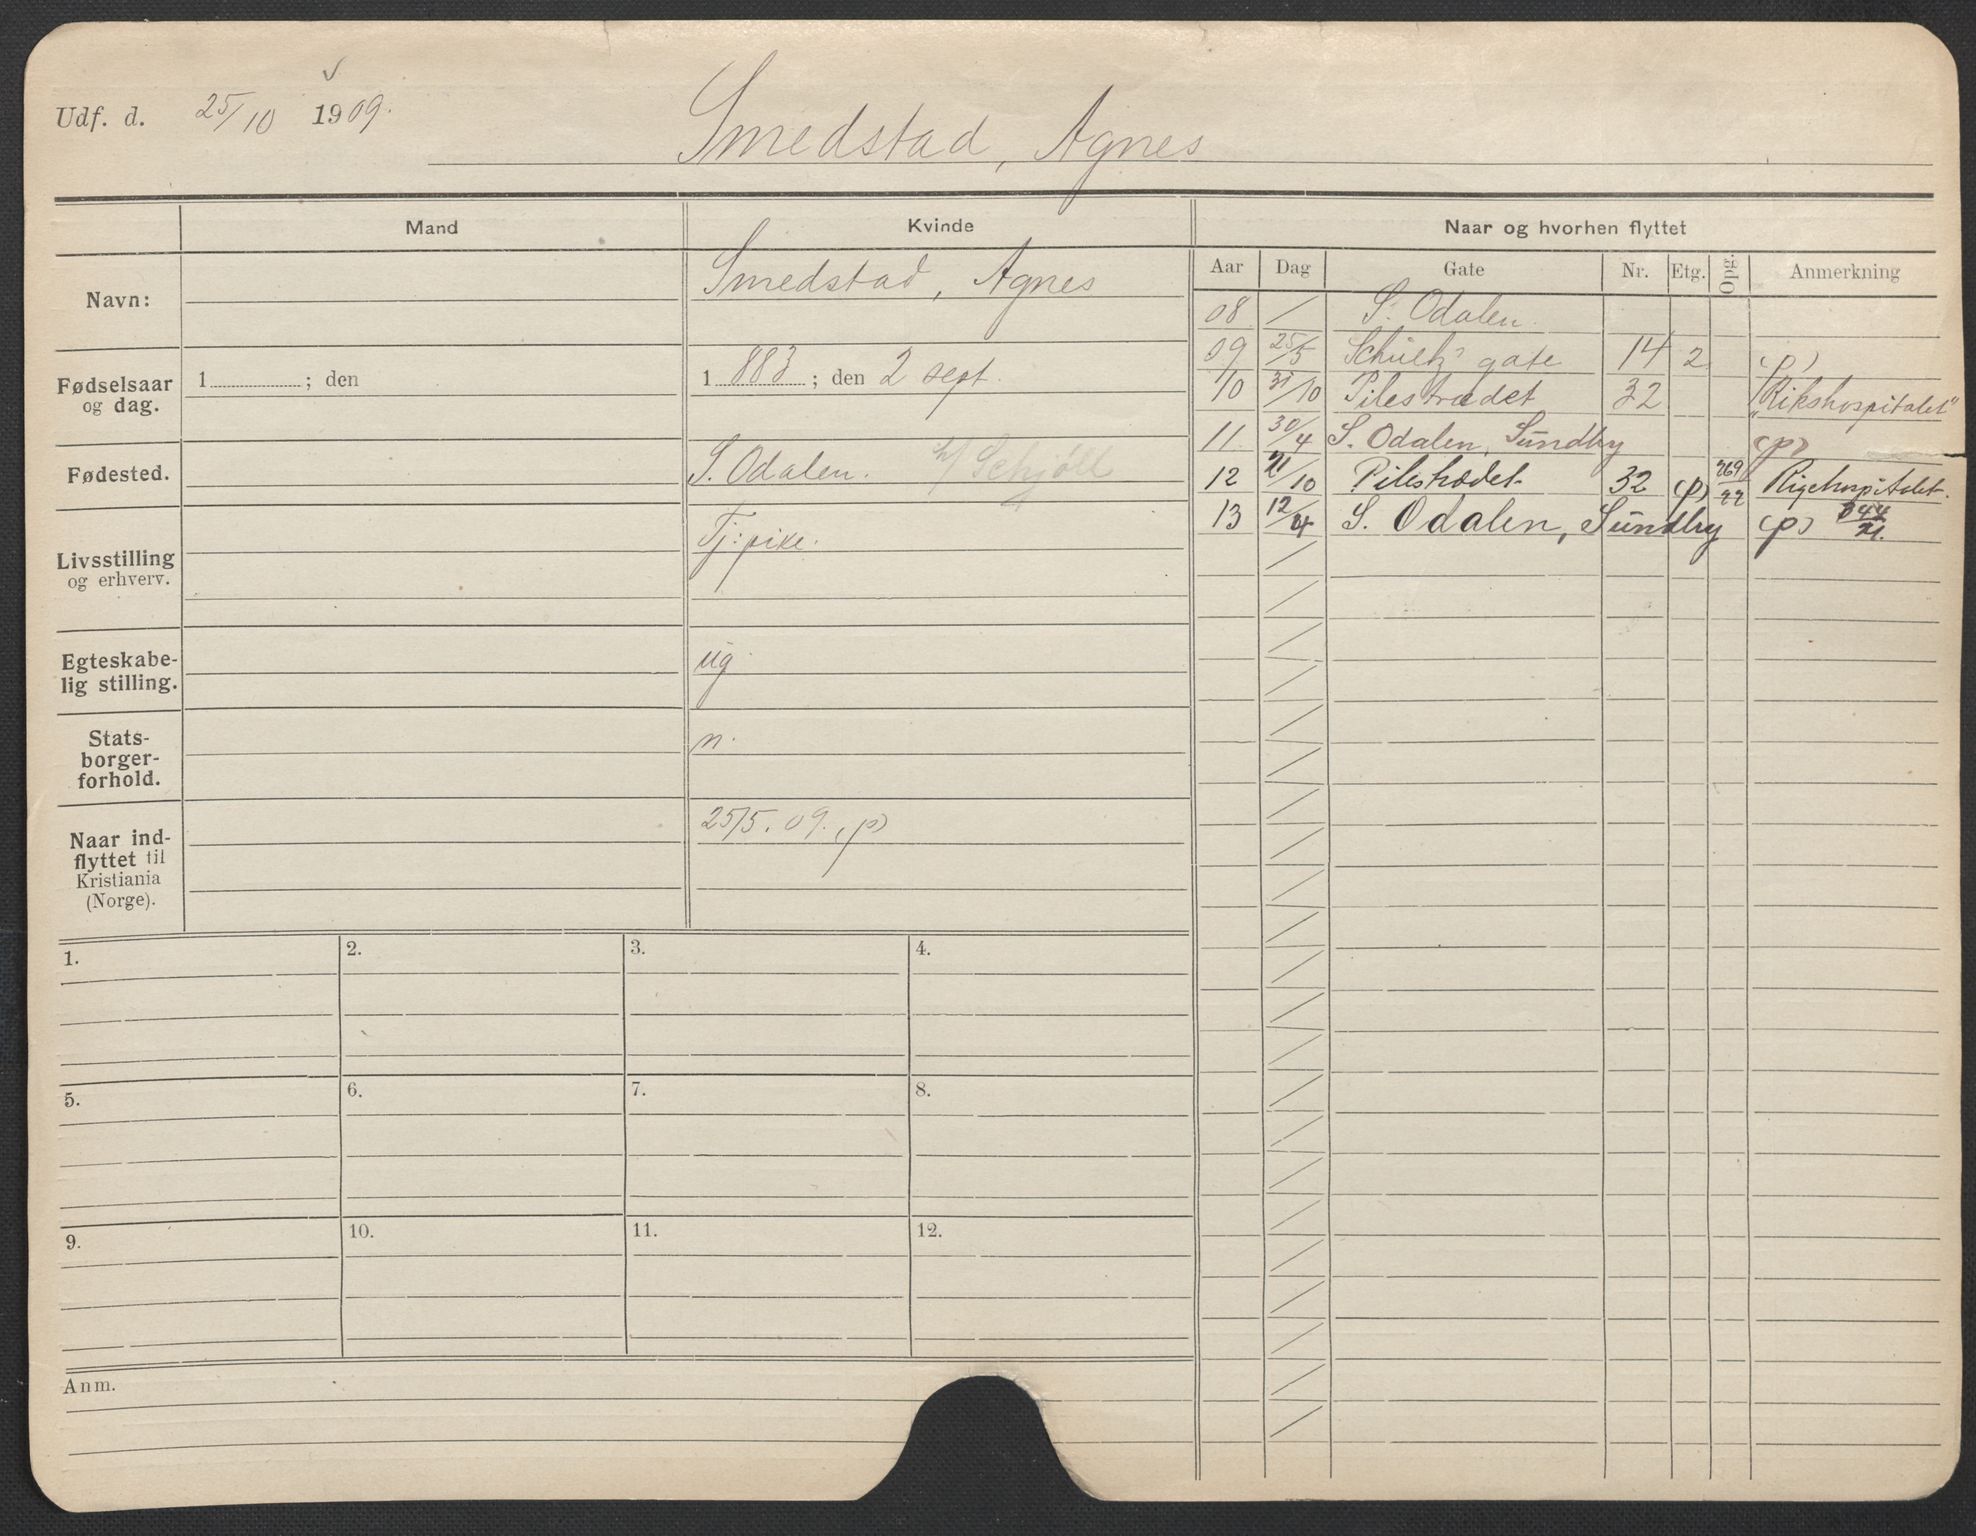 Udf. d. 25/10 1909.
Smedstad, Agnes
Mand
Kvinde
Naar og hvorhen flyttet
Aar Dag Gate Nr. Etg. Opg. Anmerkning
Navn:
Smedstad, Agnes
Fødselsaar og dag.
1 ; den
1 883 ; den 2 sept.
Fødested.
S. Odalen.
Livsstilling og erhverv.
Tj: pike.
Egteskabelig stilling.
ug
Statsborgerforhold.
n.
Naar indflyttet til Kristiania (Norge).
25/5. 09. (p)
08 / S. Odalen.
09 25/5 Schultz' gate 14 2 (p)
10 31/10 Pilestrædet 32 "Rikshospitalet"
11. 30/4 S. Odalen, Sundby (p)
12 21/10 Pilestrædet 32 (p) 269/22 Rigehospitalet.
13 12/4 S. Odalen, Sundby (p)
1. 2. 3. 4.
5. 6. 7. 8.
9. 10. 11. 12.
Anm.